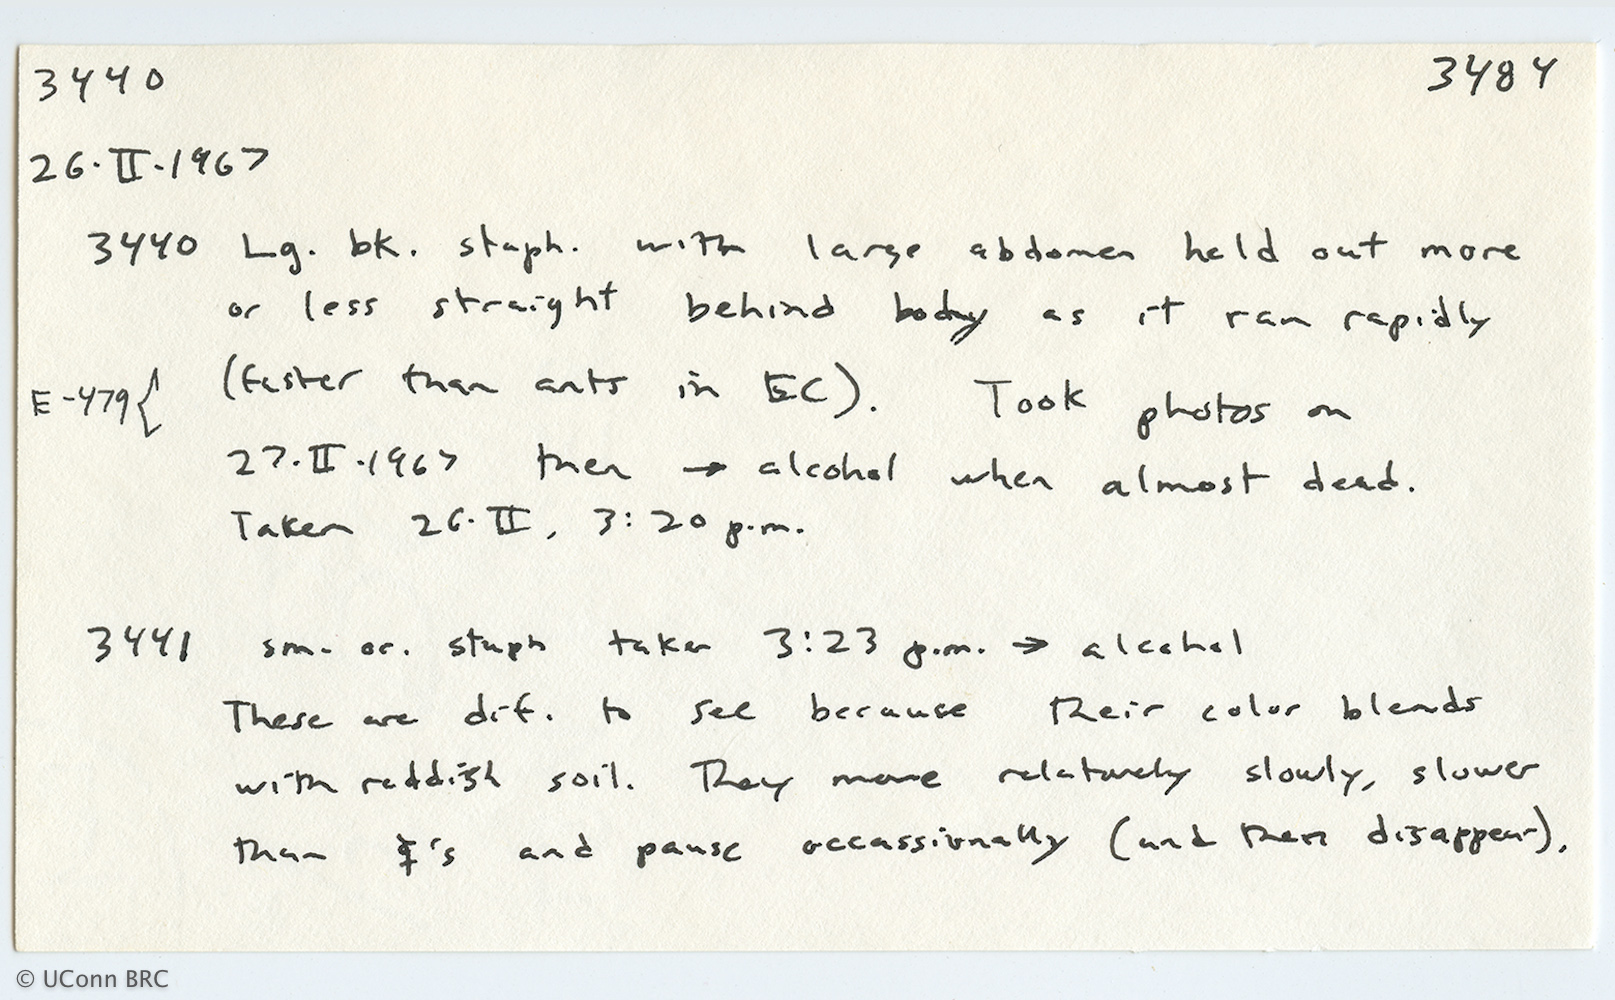 3440 3484
26.II.1967
3440 Lg. bk. staph. with large abdomen held out more
or less straight behind body as it ran rapidly
E-479{ (faster than ants in EC). Took photos on
27.II.1967 then → alcohol when almost dead.
Taken 26.II, 3:20 p.m.
3441 sm. or. staph taken 3:23 p.m. → alcohol
These are dif. to see because their color blends
with reddish soil. They move relatively slowly, slower
than ☿'s and pause occassionally (and then disappear).
© UConn BRC